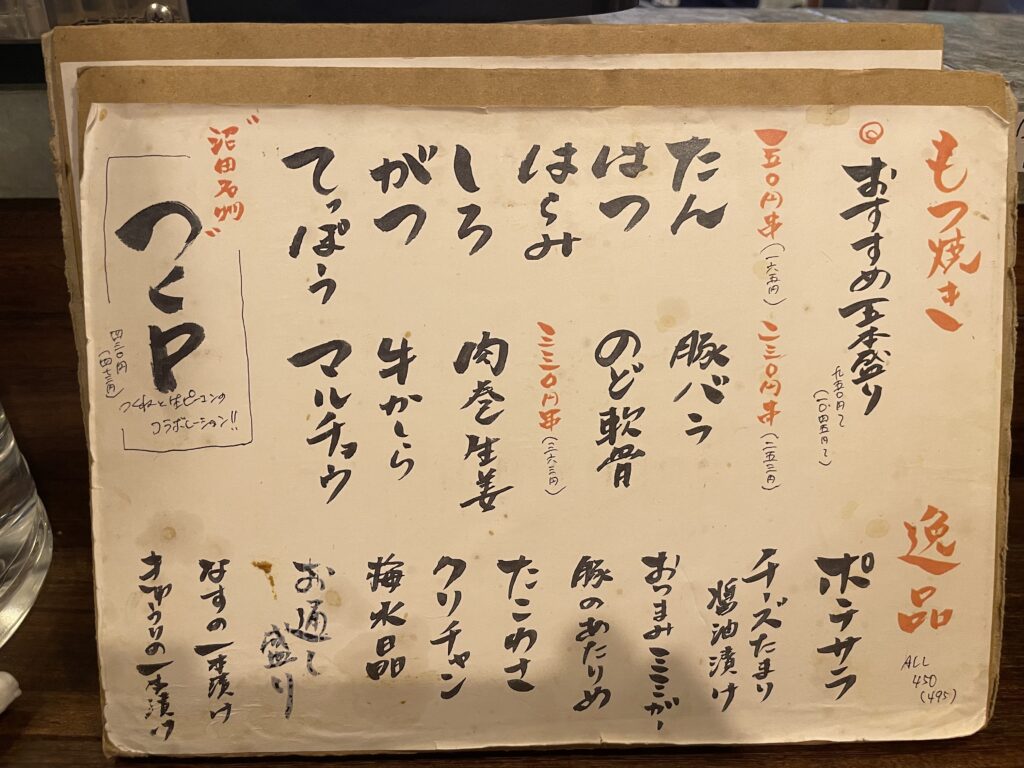 もつ焼き
◎おすすめ五本盛り
九五〇円て
(一、〇四五円て)
一五〇円串
(一六五円)
たん
はつ
はらみ
しろ
がつ
てっぽう
二三〇円串
(二五三円)
豚バラ
のど軟骨
三三〇円串
(三六三円)
肉巻生姜
牛かしら
マルチョウ
"沼田名物"
つくP
四三〇円
(四七三円)
つくねと生ピーマンの
コラボレーション!!
逸品
ALL
450
(495)
ポテサラ
チーズたまり
醤油漬け
おつまみミミガー
豚のあたりめ
たこわさ
クリチャン
梅水晶
お通し
盛り
なすの一本漬け
きゅうりの一本漬け